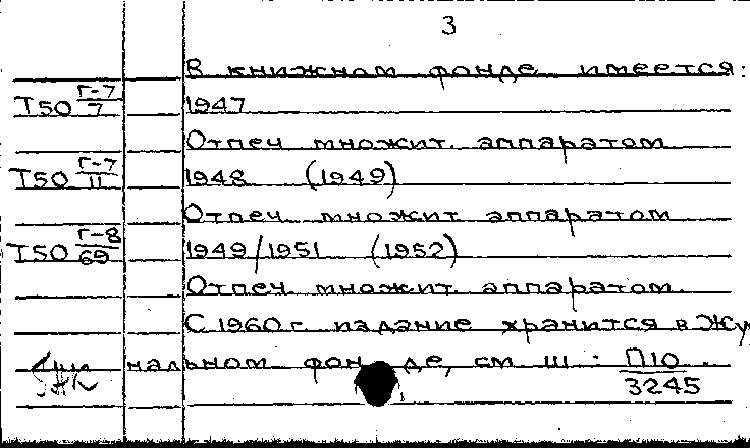 3
В книжном фонде имеется:
Т50 Г-7/7 1947
Отпеч множит. аппаратом
Т50 Г-7/11 1948 (1949)
Отпеч множит аппаратом
Т50 Г-8/69 1949/1951 (1952)
Отпеч. множит. аппаратом.
С 1960 г издание хранится в Жур
нальном фон де, см Ш: П10/3245